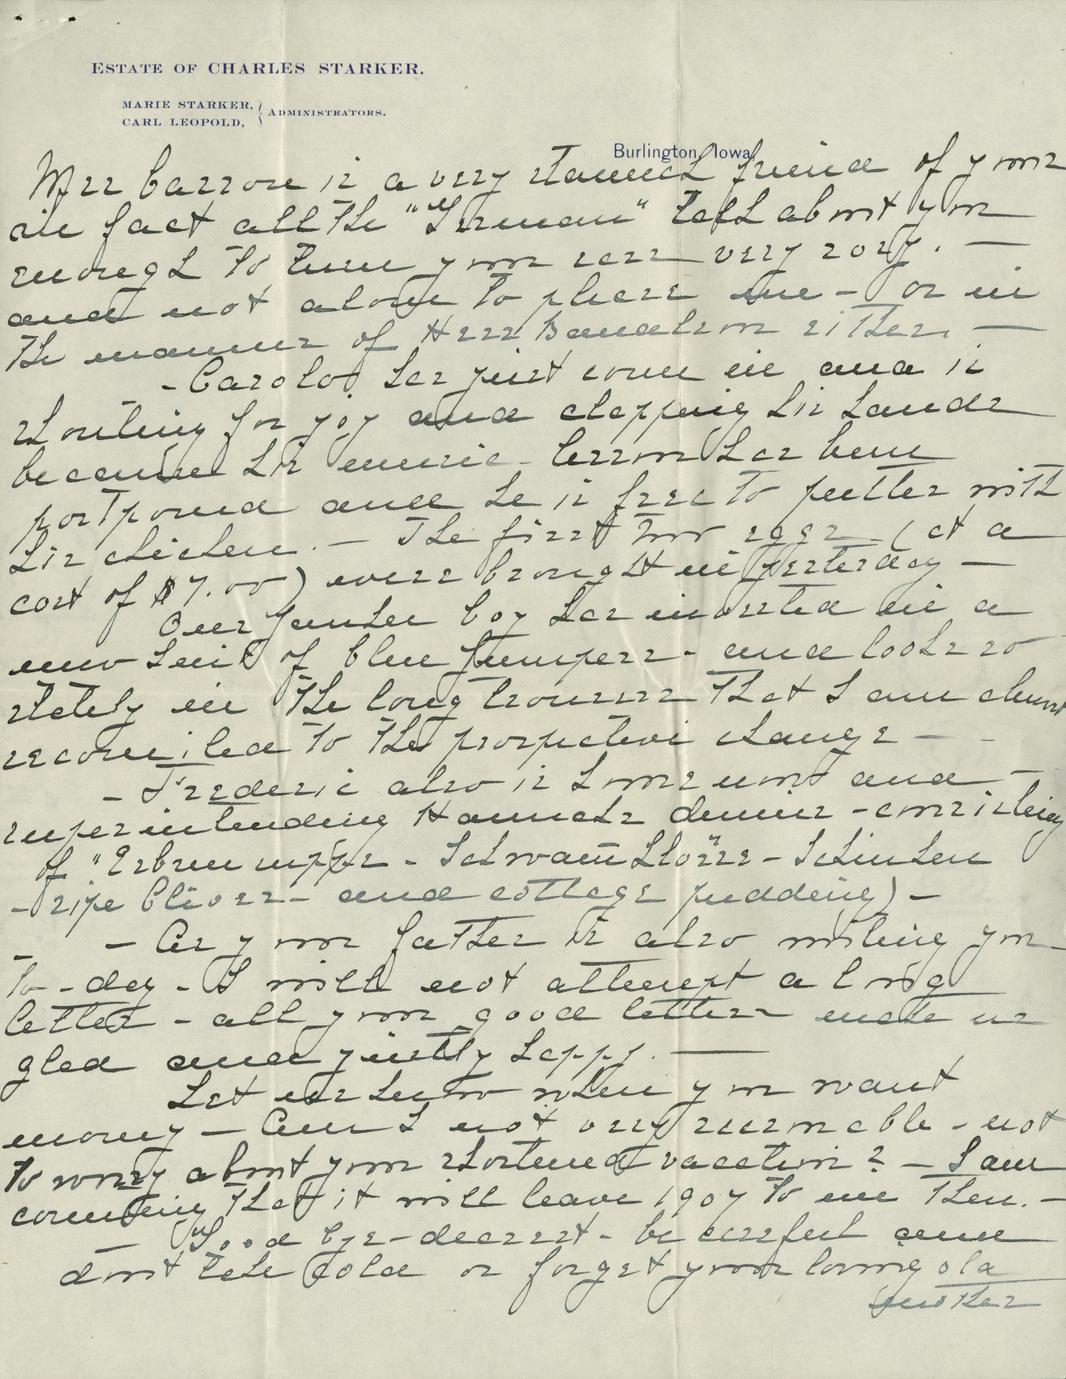 ESTATE OF CHARLES STARKER.
MARIE STARKER,
CARL LEOPOLD,
ADMINISTRATORS.
Burlington, Iowa
Mrs Carson is a very staunch friend of yours
in fact all the "German" talk about you
enough to turn your ears very rosy. —
and not alone to please me - or in
the manner of Herr either. —
- Carolo has just come in and is
shouting for joy and clapping his hands
because his music - lesson has been
postponed and he is free to putter with
his chicken. — The first two eggs - (at a
cost of $7.00) were brought in yesterday —
Our Junker boy has invested in a
new suit of blue jumpers - and looks so
stately in the long trousers that I am almost
reconciled to the prospective change —
- Frederic also is home now and —
superintending Hannahs dinner - consisting
of " - - Schinken
- ripe Olives - and cottage pudding) -
- As your father is also writing you
to-day - I will not attempt a long
letter - all your good letters make us
glad and justly happy. —
Let us know when you want
money — Am I not very reasonable - not
to worry about your shortened vacation? — I am
counting that it will leave 1907 to me then. —
— Good bye - dearest - be careful and
dont take cold or forget your loving old
mother